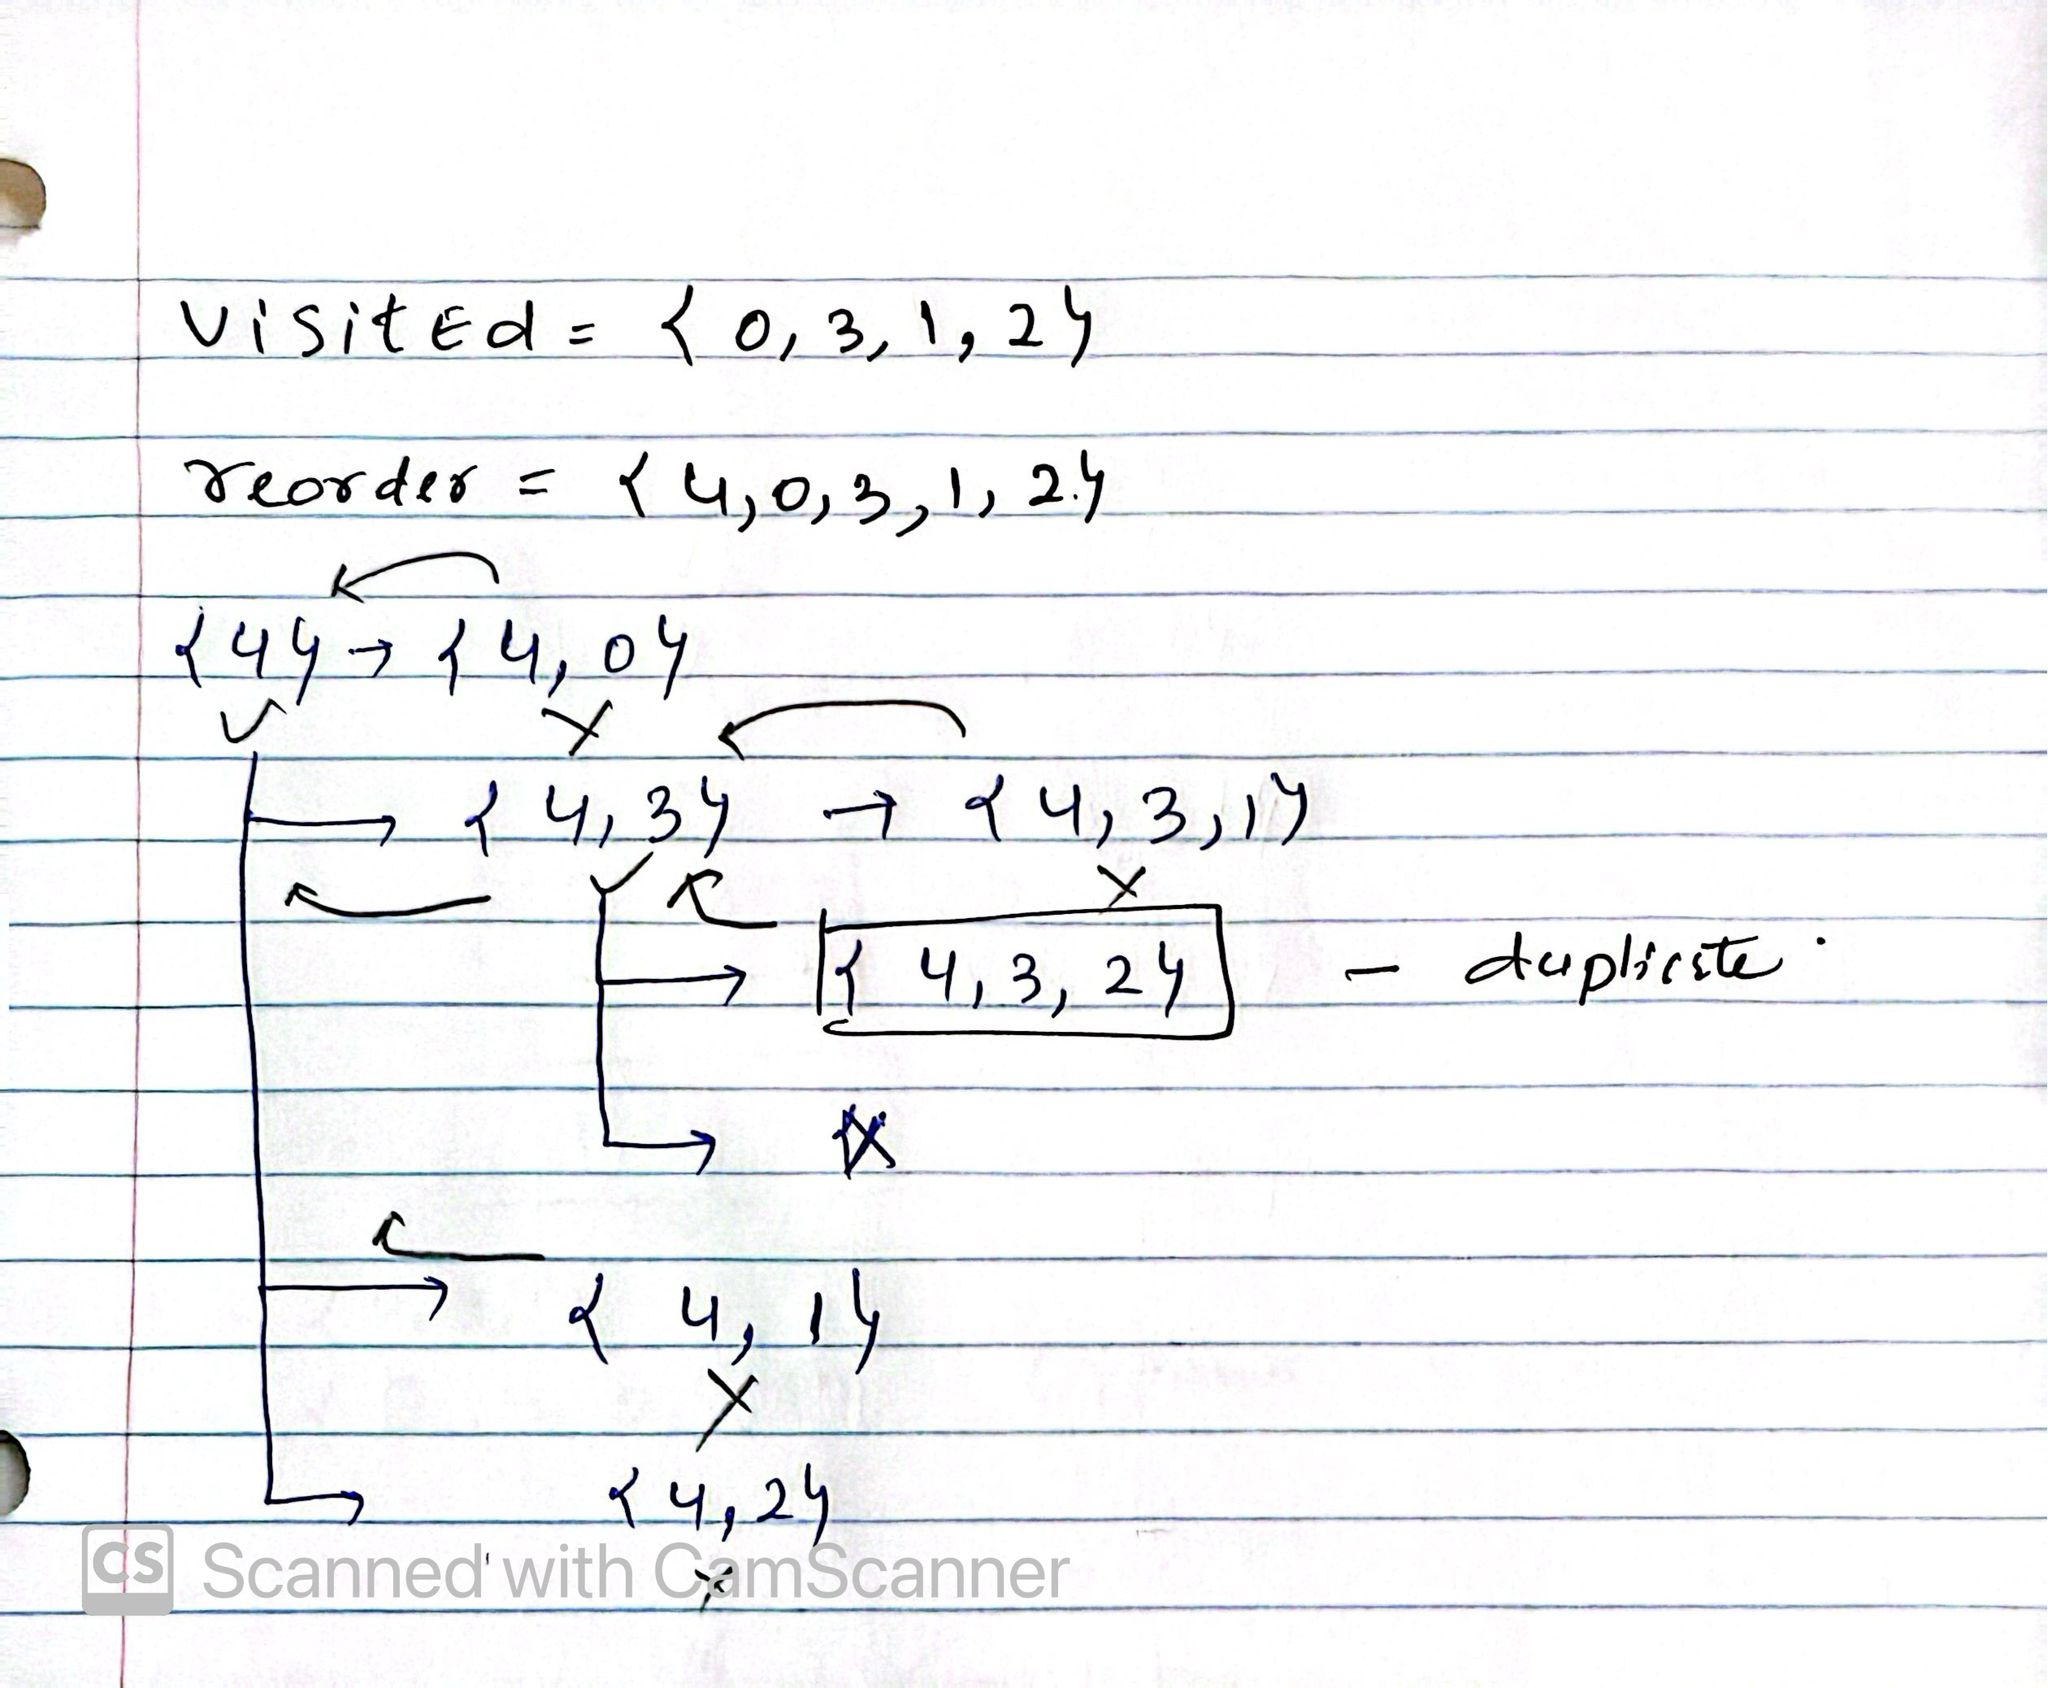 visited = { 0, 3, 1, 2}
reorder = { 4, 0, 3, 1, 2.}
{4} → { 4, 0}
✓ X
→ { 4, 3} → { 4, 3, 1}
✓ X
→ { 4, 3, 2} - duplicate.
→ X
→ { 4, 1}
X
→ { 4, 2}
X
CS Scanned with CamScanner